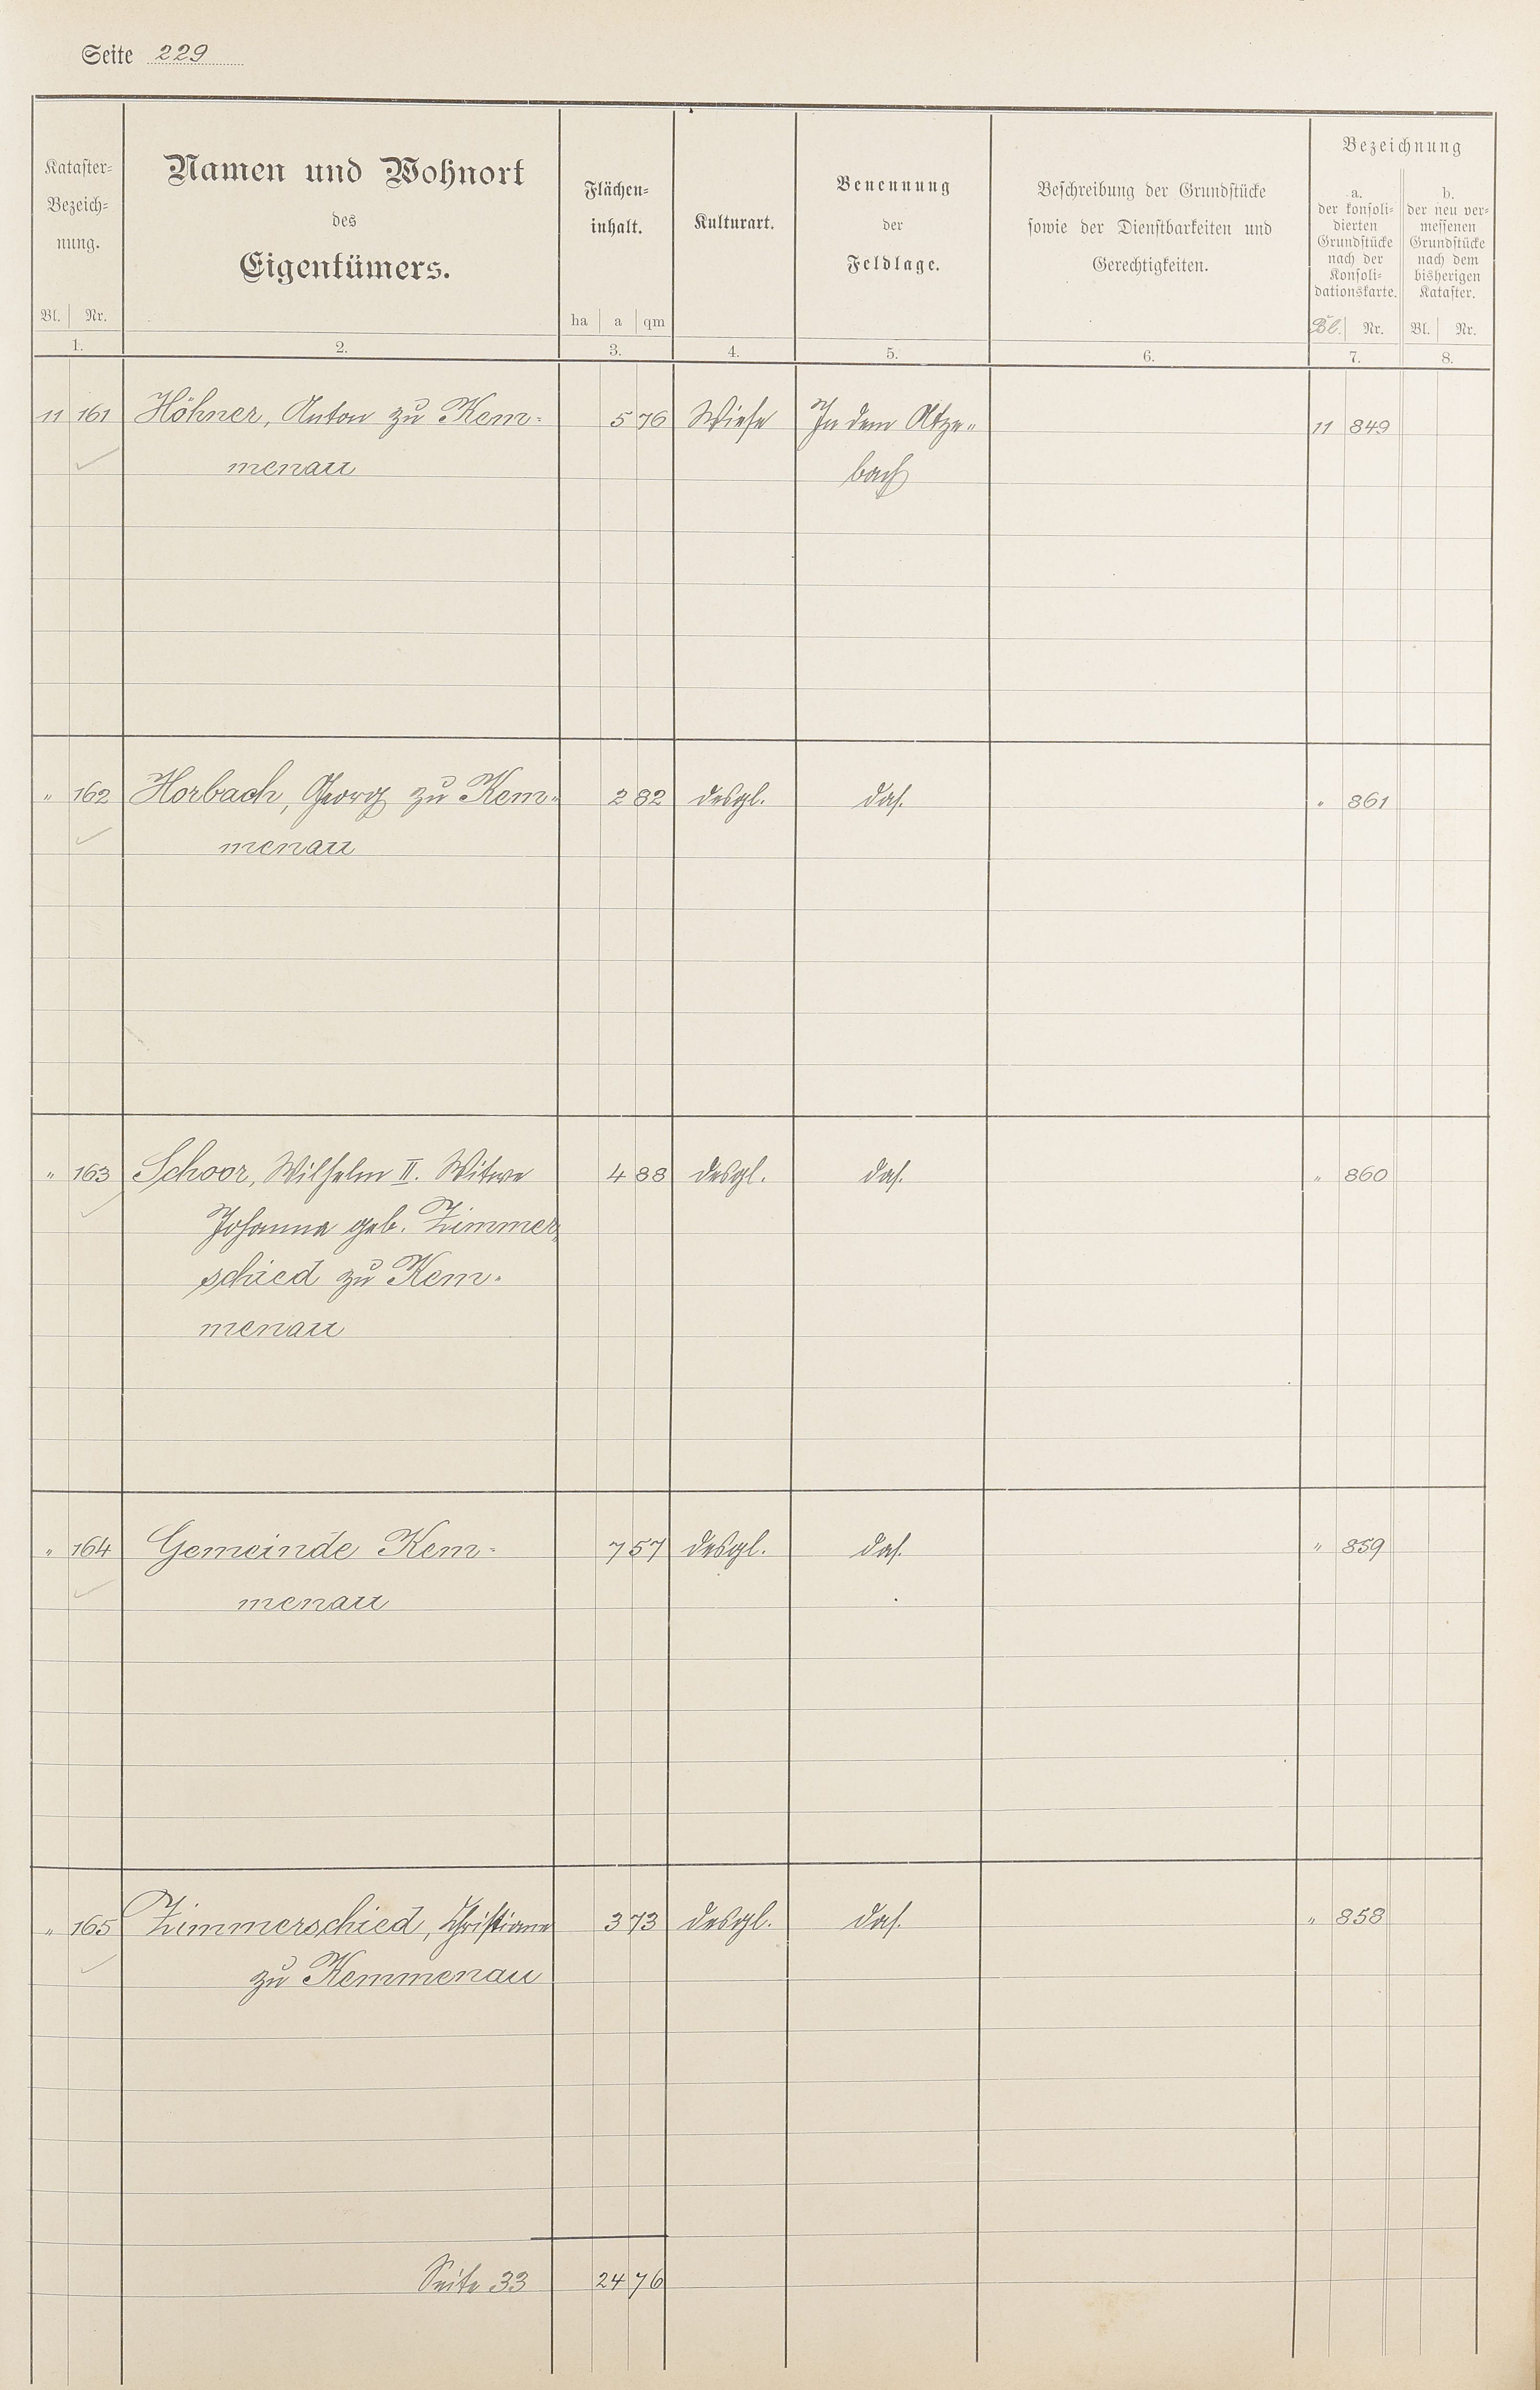 Seite 229
Kataster-
Bezeich-
nung.
Bl. Nr.
1.
Namen und Wohnort
des
Eigentümers.
2.
Flächen-
inhalt.
ha a qm
3.
Kulturart.
4.
Benennung
der
Feldlage.
5.
Beschreibung der Grundstücke
sowie der Dienstbarkeiten und
Gerechtigkeiten.
6.
Bezeichnung
a.
der konsoli-
dierten
Grundstücke
nach der
Konsoli-
dationskarte.
Bl. Nr.
7.
b.
der neu ver-
messenen
Grundstücke
nach dem
bisherigen
Kataster.
Bl. Nr.
8.
11 161 Höhner, Anton zu Kem- 5 76 Wiese In dem 11 849
menau bach
" 162 Horbach, Georg zu Kem- 2 82 desgl. das. " 861
menau
" 163 Schoor, Wilhelm II. Witwe 4 88 desgl. das. " 860
Johanna geb. Zimmer-
schied zu Kem-
menau
" 164 Gemeinde Kem- 7 57 desgl. das. " 859
menau
" 165 Zimmerschied, Christiane 3 73 desgl. das. " 858
zu Kemmenau
Seite 33 24 76